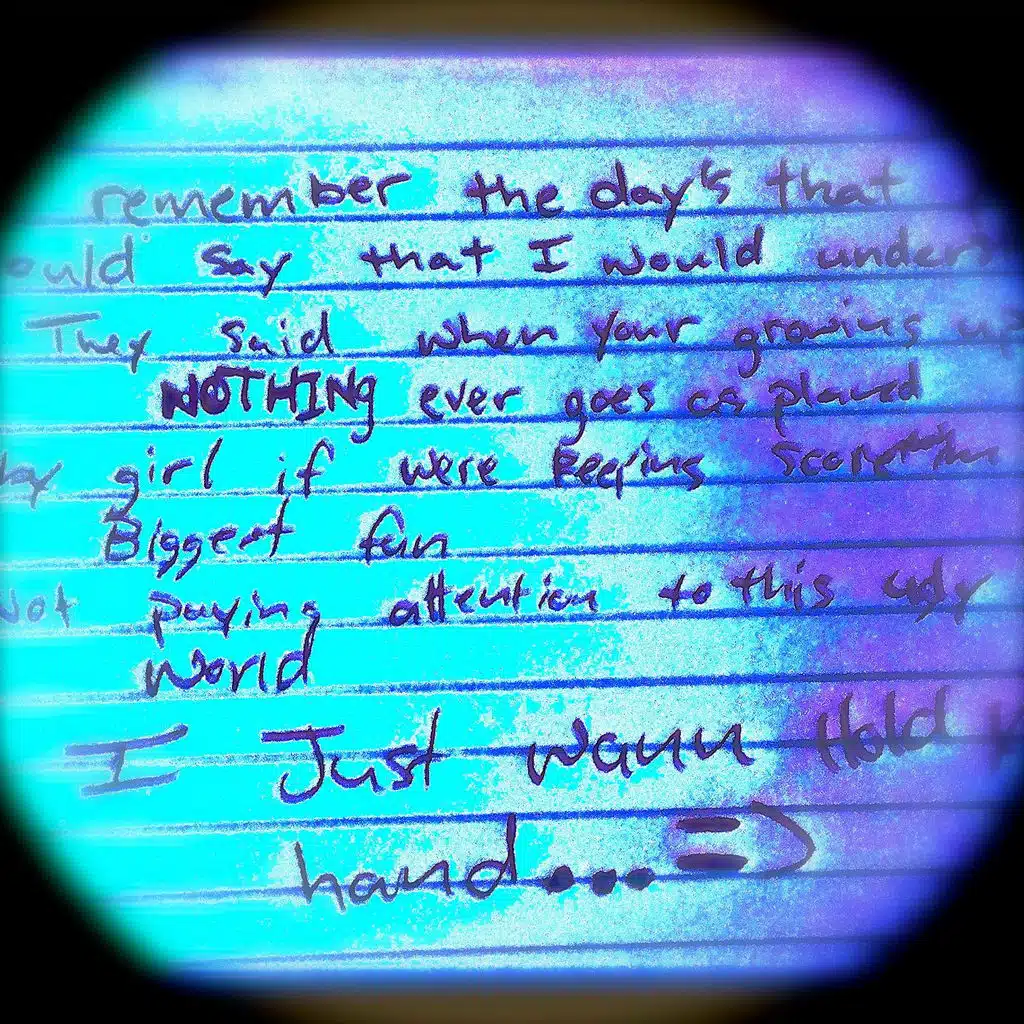 remember the day's that
ould say that I would unders
They said when your growing up
NOTHING ever goes as planed
by girl if were keeping score
Biggest fan
Not paying attention to this ugly
world
I Just wanna Hold
hand...=)